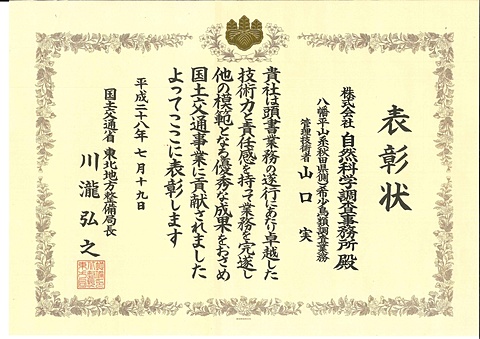 表彰状
株式会社 自然科学調査事務所 殿
八幡平山系秋田県側希少鳥類調査業務
管理技術者 山口 実
貴社は頭書業務の遂行にあたり卓越した
技術力と責任感を持って業務を完遂し
他の模範となる優秀な成果をおさめ
国土交通事業に貢献されました
よってここに表彰します
平成二十八年七月十九日
国土交通省 東北地方整備局長
川瀧弘之